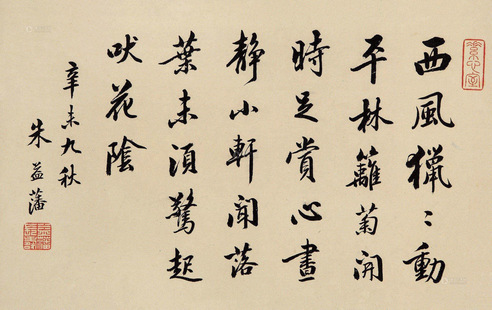 西風獵〻動
平林籬菊開
時足賞心晝
靜小軒聞落
葉未須驚起
吠花陰
辛未九秋
朱益藩